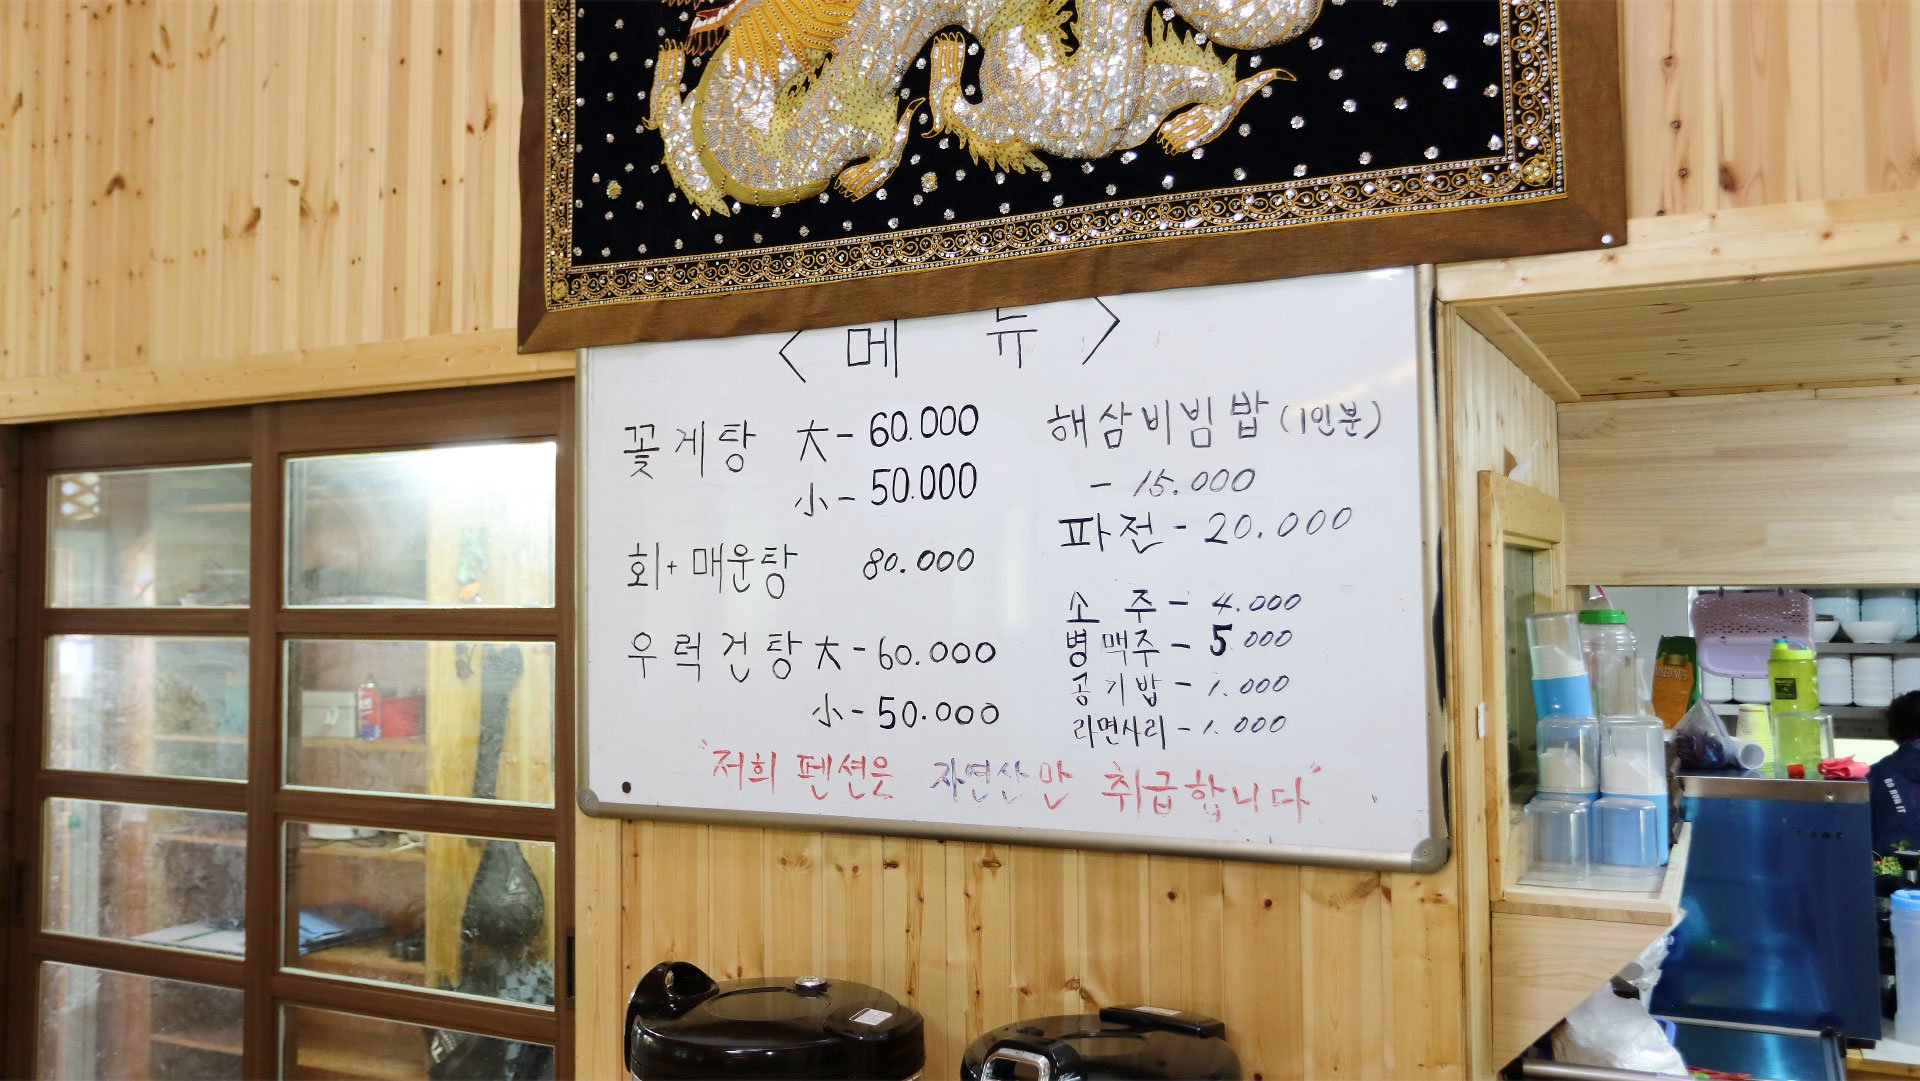 < 메 뉴 >
꽃게탕 大 - 60.000
小 - 50.000
회 + 매운탕 80.000
우럭건탕 大 - 60.000
小 - 50.000
해삼비빔밥 (1인분)
- 15.000
파전 - 20.000
소 주 - 4.000
병맥주 - 5.000
공기밥 - 1.000
라면사리 - 1.000
"저희 펜션은 자연산만 취급합니다"
GO RUN IT